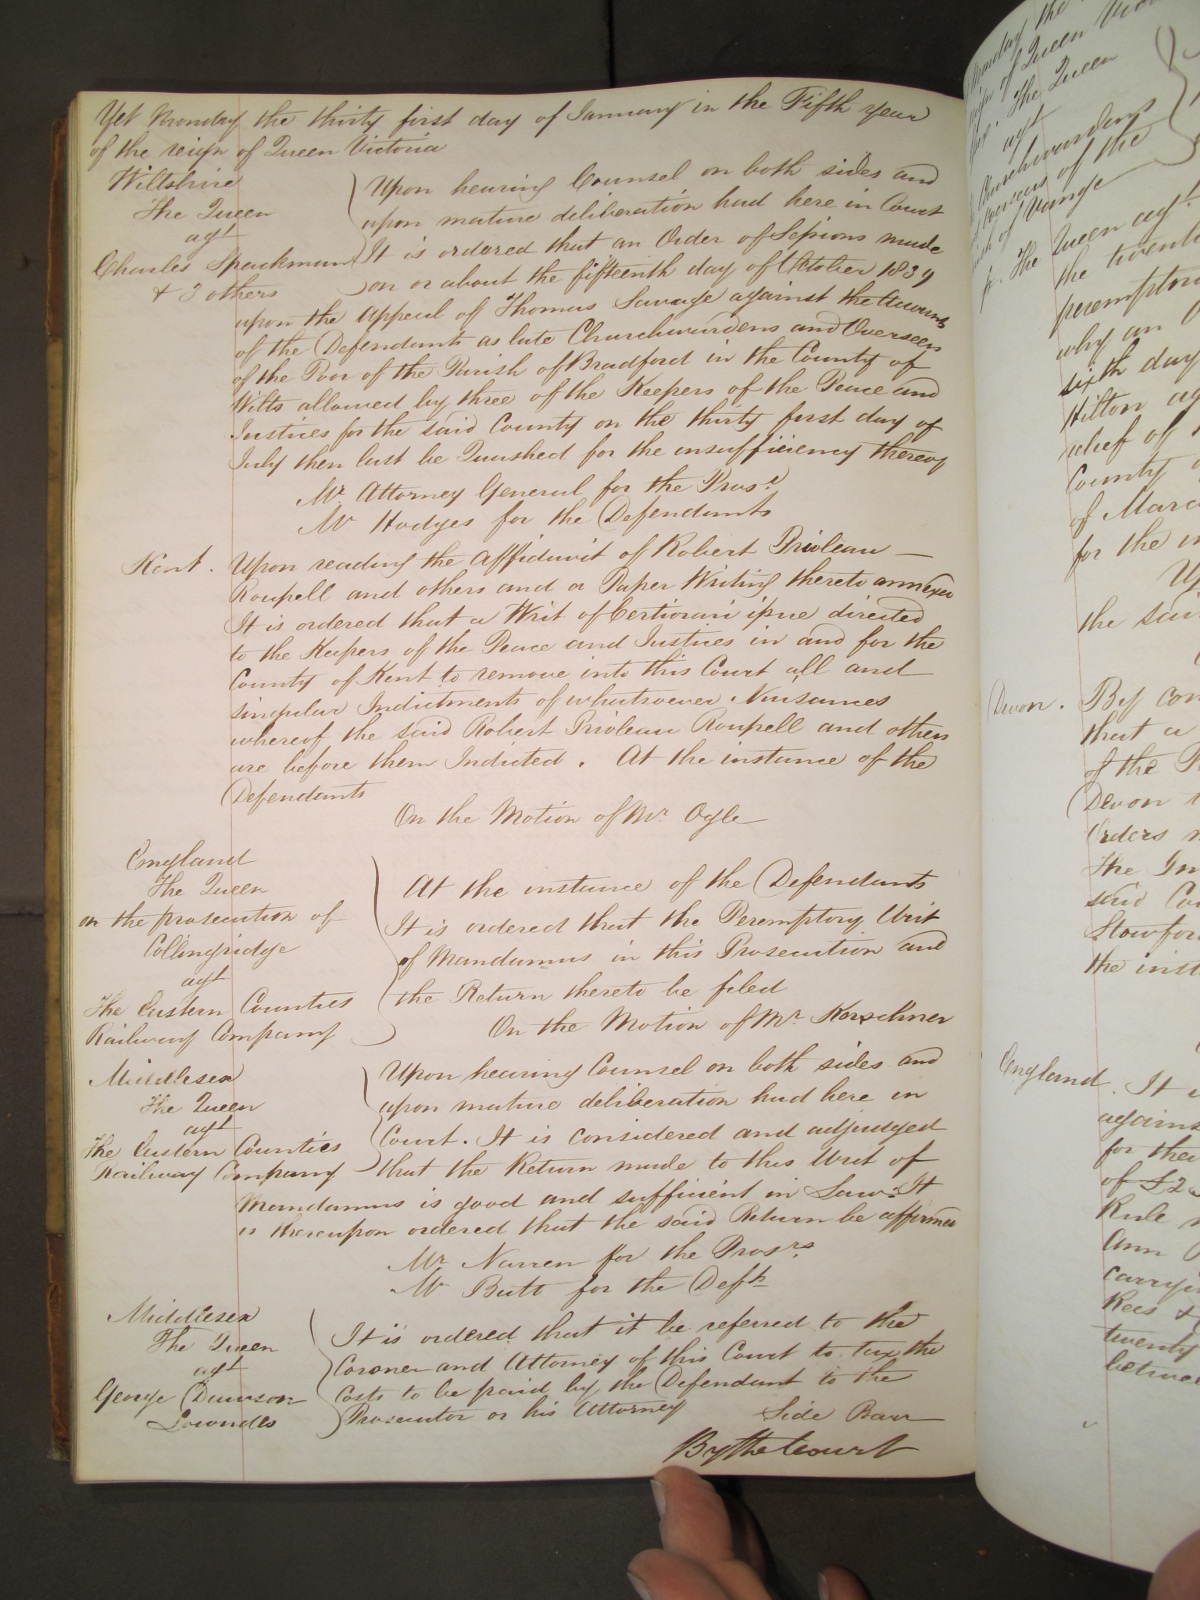 Yet Monday the thirty first day of January in the Fifth year
of the reign of Queen Victoria
Wiltshire
The Queen
agt
Charles Spackman
& 3 others
Upon hearing Counsel on both sides and
upon mature deliberation had here in Court
It is ordered that an Order of Sessions made
on or about the fifteenth day of October 1839
upon the Appeal of Thomas Savage against the Accounts
of the Defendants as late Churchwardens and Overseers
of the Poor of the Parish of Bradford in the County of
Wilts allowed by three of the Keepers of the Peace and
Justices for the said County on the thirty first day of
July then last be Quashed for the insufficiency thereof
Mr. Attorney General for the Prosr
Mr Hodges for the Defendants
Kent. Upon reading the Affidavit of Robert Prioleau
Roupell and others and a Paper Writing thereto annexed
It is ordered that a Writ of Certiorari issue directed
to the Keepers of the Peace and Justices in and for the
County of Kent to remove into this Court all and
singular Indictments of whatsoever Nuisances
whereof the said Robert Prioleau Roupell and others
are before them Indicted. At the instance of the
Defendants
On the Motion of Mr. Ogle
England
The Queen
on the prosecution of
Collingridge
agt
The Eastern Counties
Railway Company
At the instance of the Defendants
It is ordered that the Peremptory Writ
of Mandamus in this Prosecution and
the Return thereto be filed
On the Motion of Mr.
Middlesex
The Queen
agt
The Eastern Counties
Railway Company
Upon hearing Counsel on both sides and
upon mature deliberation had here in
Court. It is considered and adjudged
that the Return made to this Writ of
Mandamus is good and sufficient in Law. It
is thereupon ordered that the said Return be affirmed
Mr. for the Prosrs.
Mr Butt for the Defts
Middlesex
The Queen
agt
George Dawson
Lowndes
It is ordered that it be referred to the
Coroner and Attorney of this Court to tax the
Costs to be paid by the Defendant to the
Prosecutor or his Attorney
Side Barr
By the Court
The Queen
agt
Churchwardens
of the
The Queen agt.
the
why an
sixth day
Hilton
County
of
for the
the said
Devon. By con
that a
of the
Devon
Orders
the
said
Stowfor
the inst
England. It
against
for their
of £2
Rule
Ann
carryi
Rees &
twenty